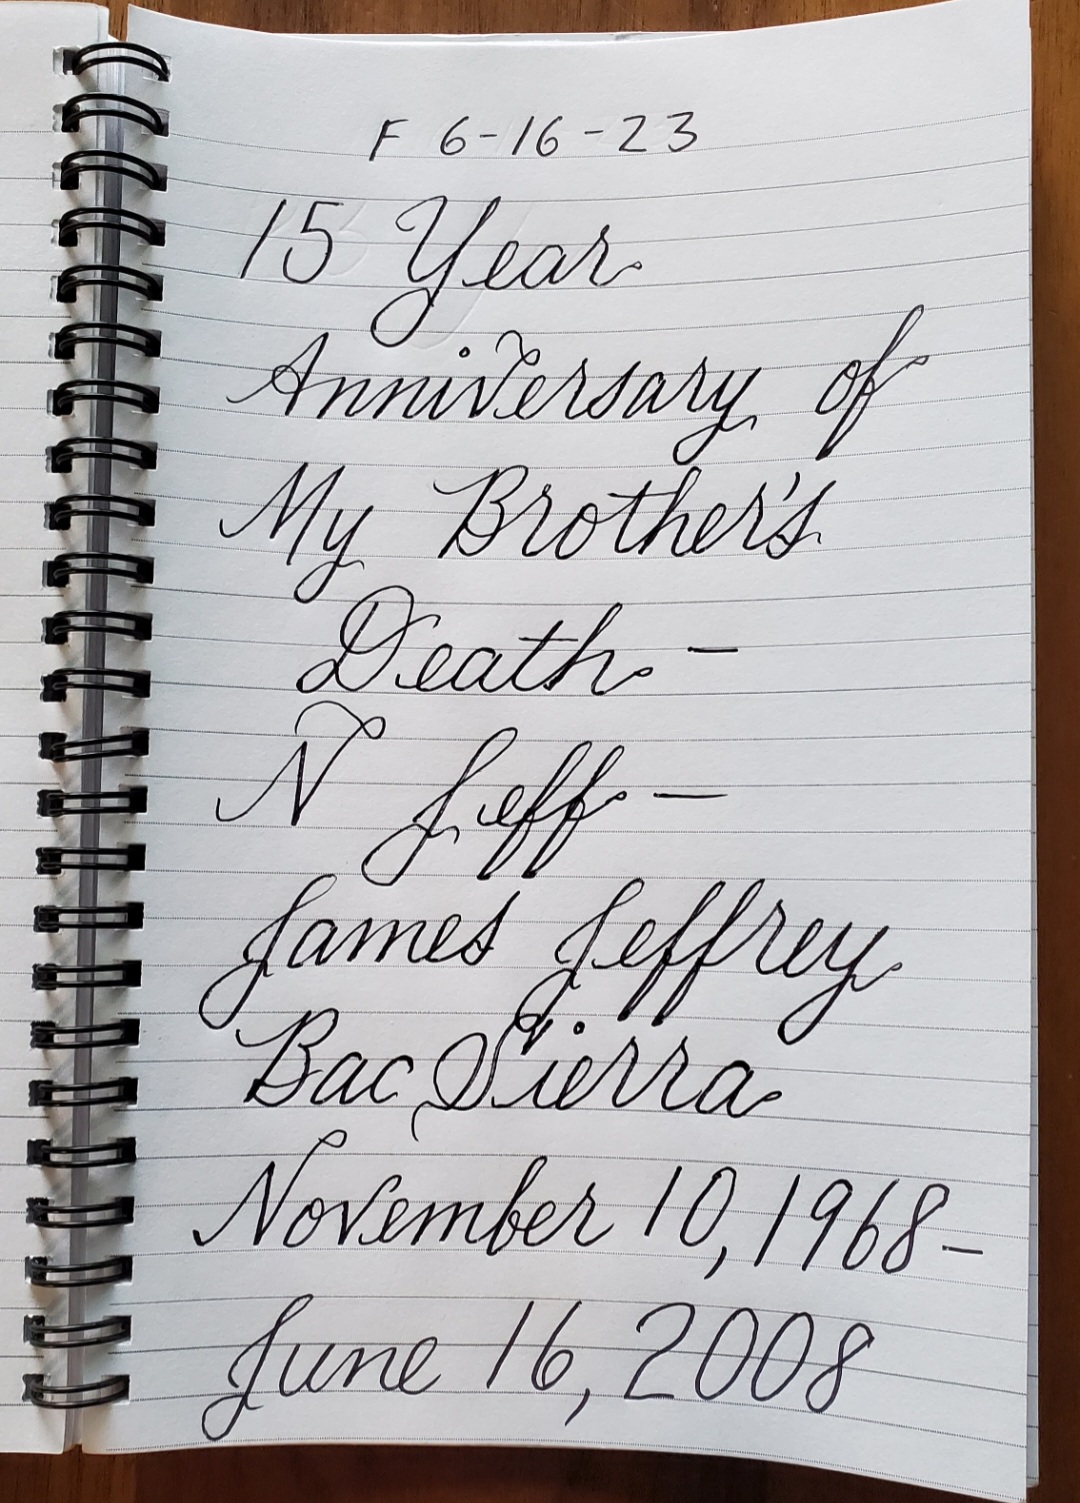 F 6-16-23
15 Year
Anniversary of
My Brother's
Death -
N Jeff -
James Jeffrey
Bac Sierra
November 10, 1968-
June 16, 2008